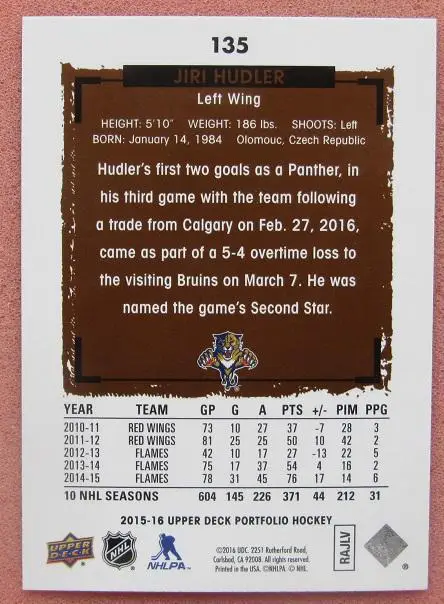 135
JIRI HUDLER
Left Wing
HEIGHT: 5'10" WEIGHT: 186 lbs. SHOOTS: Left
BORN: January 14, 1984 Olomouc, Czech Republic
Hudler's first two goals as a Panther, in
his third game with the team following
a trade from Calgary on Feb. 27, 2016,
came as part of a 5-4 overtime loss to
the visiting Bruins on March 7. He was
named the game's Second Star.
YEAR TEAM GP G A PTS +/- PIM PPG
2010-11 RED WINGS 73 10 27 37 -7 28 3
2011-12 RED WINGS 81 25 25 50 10 42 2
2012-13 FLAMES 42 10 17 27 -13 22 5
2013-14 FLAMES 75 17 37 54 4 16 2
2014-15 FLAMES 78 31 45 76 17 14 6
10 NHL SEASONS 604 145 226 371 44 212 31
2015-16 UPPER DECK PORTFOLIO HOCKEY
UPPER DECK
NHL
NHLPA
©2016 UDC. 2251 Rutherford Road,
Carlsbad, CA 92008. All rights reserved.
Printed in the USA. ©NHLPA. © NHL.
RAJLV
®